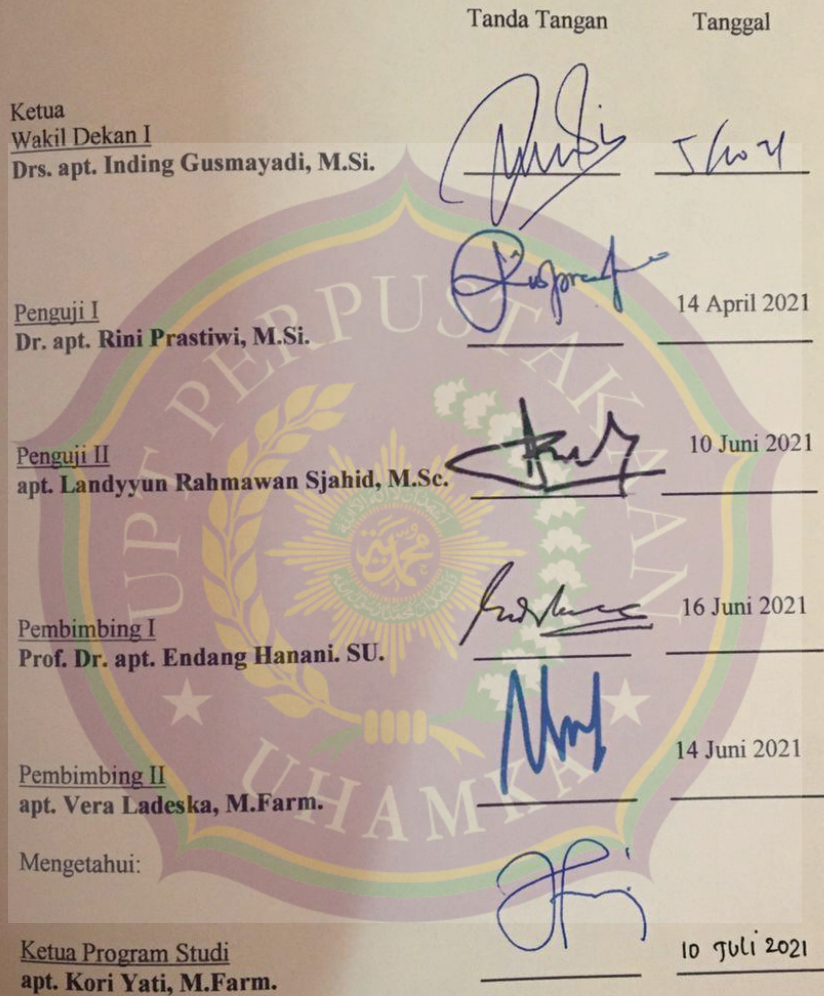 Tanda Tangan Tanggal
Ketua
Wakil Dekan I
Drs. apt. Inding Gusmayadi, M.Si.
Penguji I
Dr. apt. Rini Prastiwi, M.Si.
14 April 2021
Penguji II
apt. Landyyun Rahmawan Sjahid, M.Sc.
10 Juni 2021
Pembimbing I
Prof. Dr. apt. Endang Hanani. SU.
16 Juni 2021
Pembimbing II
apt. Vera Ladeska, M.Farm.
14 Juni 2021
Mengetahui:
Ketua Program Studi
apt. Kori Yati, M.Farm.
10 JULi 2021
UPT PERPUSTAKAAN
UHAMKA